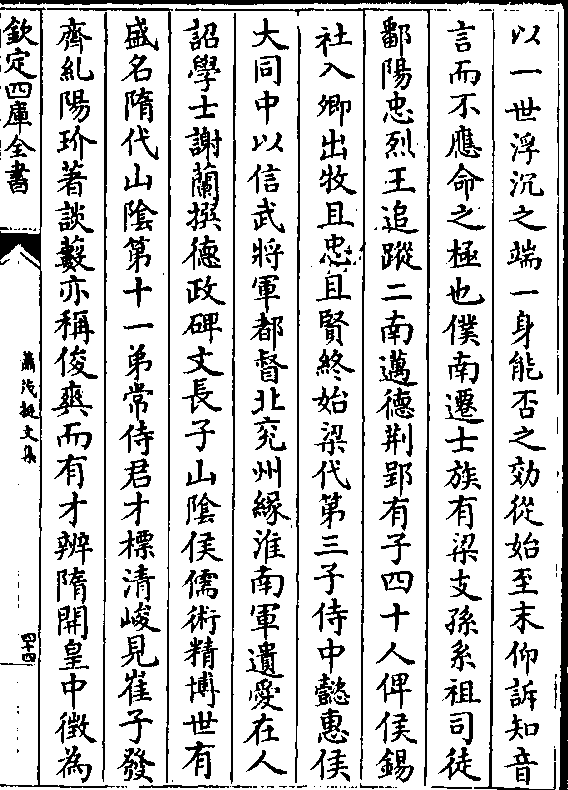 以一世浮沉之端一身能否之効從始至末仰訴知音
言而不應命之極也僕南遷士族有梁支孫系祖司徒
鄱陽忠烈王追蹤二南邁德荆郢有子四十人俾侯錫
社入卿出牧且忠且賢終始梁代第三子侍中懿惠侯
大同中以信武將軍都督北兖州緣淮南軍遺愛在人
詔學士謝蘭撰德政碑文長子山陰侯儒術精博世有
盛名隋代山隂第十一弟常侍君才標清峻見崔子發
齊紀陽玠著談藪亦稱俊爽而有才辨隋開皇中徵為
欽定四庫全書
蕭茂挺文集
四十四